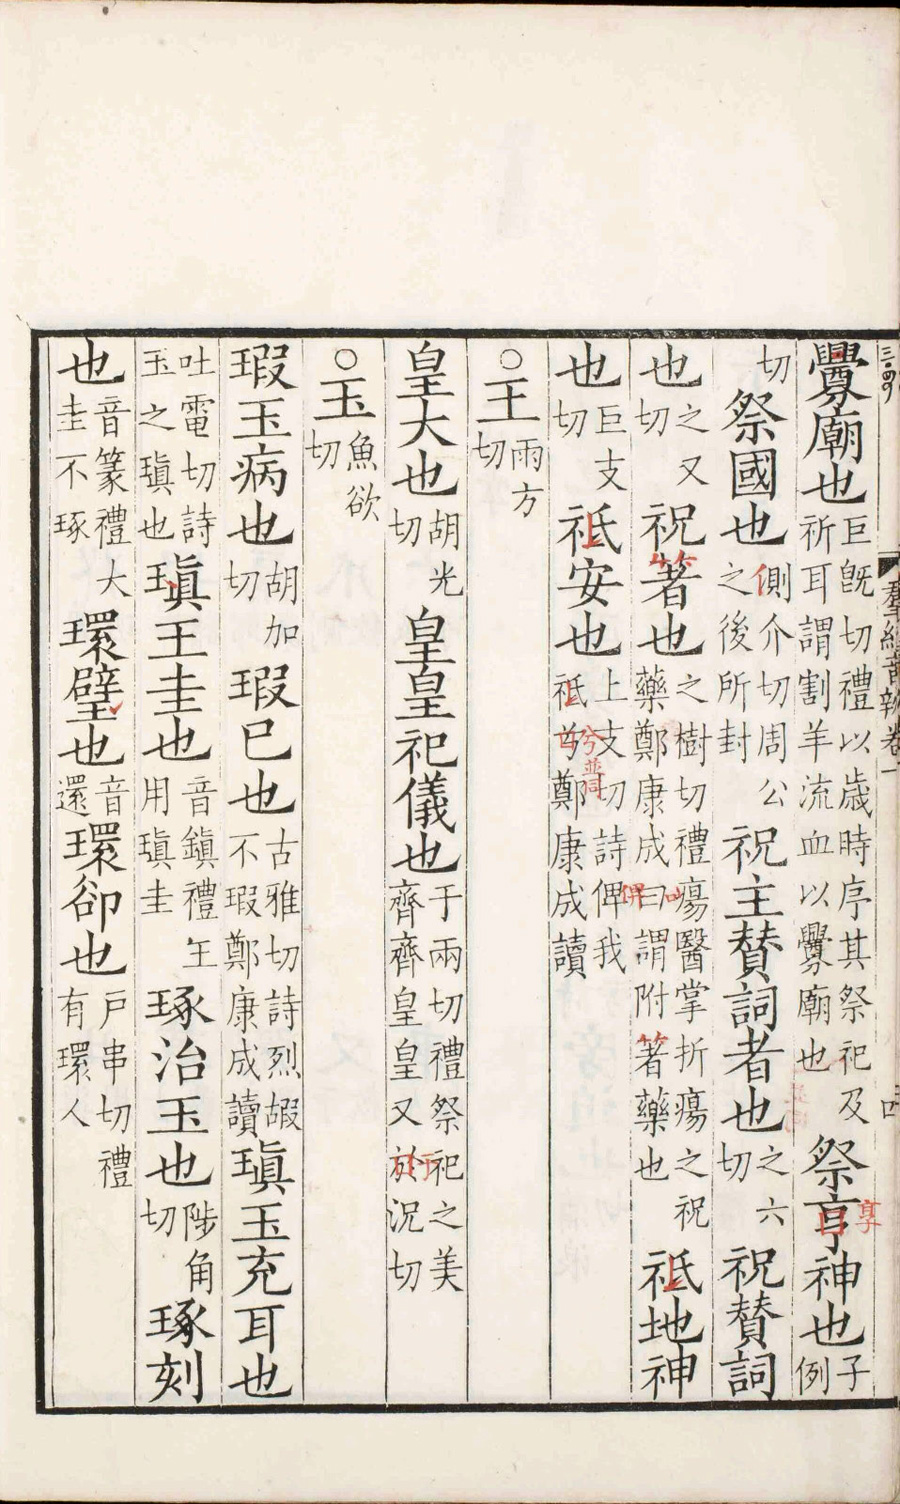 釁廟也巨旣切禮以歲時序其祭祀及祈耳謂割羊流血以釁廟也祭亨神也子例
切祭國也側介切周公之後所封祝主賛詞者也之六切祝賛詞
也之又切祝著也之樹切禮瘍醫掌折瘍之祝藥鄭康成曰謂附著藥也祇地神
也巨支切祇安也上支切詩俾我祇鄭康成讀
○王雨方切
皇大也胡光切皇皇祀儀也于兩切禮祭祀之美齊齊皇皇又於況切
○玉魚欲切
瑕玉病也胡加切瑕巳也古雅切詩烈嘏不瑕鄭康成讀瑱玉充耳也
吐電切詩玉之瑱也瑱王圭也音鎮禮王用瑱圭琢治玉也陟角切琢刻
也音篆禮大圭不琢環璧也音還環卻也戸串切禮有環人
羣經音辨卷一
四
享